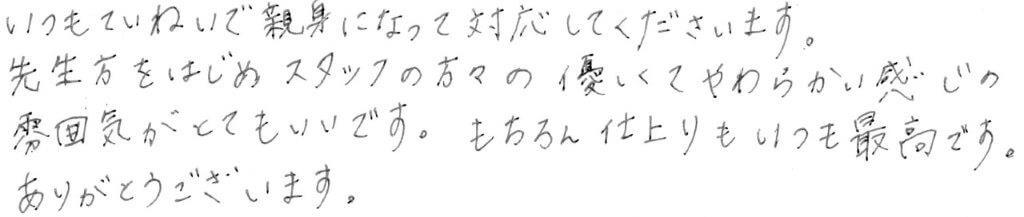 いつもていねいで親身になって対応してくださいます。
先生方をはじめスタッフの方々の優しくてやわらかい感じの
雰囲気がとてもいいです。もちろん仕上りもいつも最高です。
ありがとうございます。